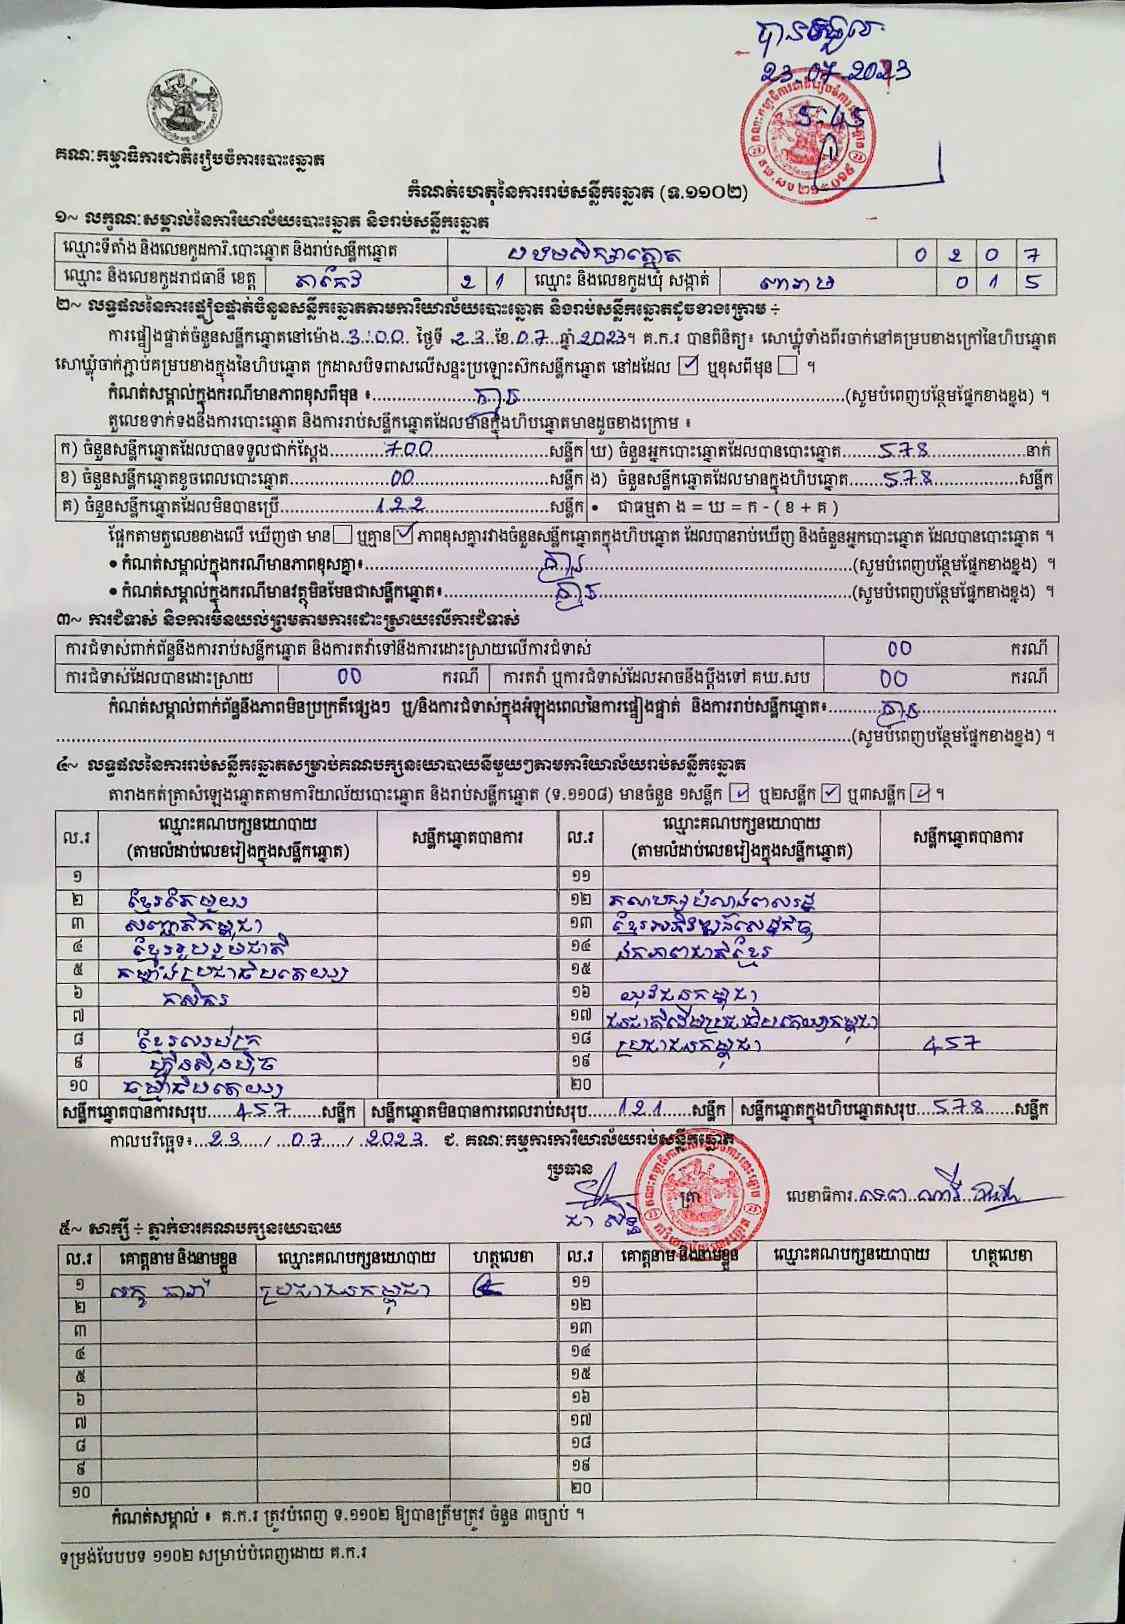 បានទទួល
23.07.2023
5:45
គណៈកម្មាធិការជាតិរៀបចំការបោះឆ្នោត
កំណត់ហេតុនៃការរាប់សន្លឹកឆ្នោត (ទ.១១០២)
១~ លក្ខណៈសម្គាល់នៃការិយាល័យបោះឆ្នោត និងរាប់សន្លឹកឆ្នោត
ឈ្មោះទីតាំង និងលេខកូដការិ.បោះឆ្នោត និងរាប់សន្លឹកឆ្នោត 0 2 0 7
ឈ្មោះ និងលេខកូដរាជធានី ខេត្ត តាកែវ 2 1 ឈ្មោះ និងលេខកូដឃុំ សង្កាត់ 0 1 5
២~ លទ្ធផលនៃការផ្ទៀងផ្ទាត់ចំនួនសន្លឹកឆ្នោតតាមការិយាល័យបោះឆ្នោត និងរាប់សន្លឹកឆ្នោតដូចខាងក្រោម ÷
ការផ្ទៀងផ្ទាត់ចំនួនសន្លឹកឆ្នោតនៅម៉ោង..3:00.. ថ្ងៃទី .23.ខែ.07..ឆ្នាំ.2023។ គ.ក.រ បានពិនិត្យ៖ សោឃ្លុំទាំងពីរចាក់នៅគម្របខាងក្រៅនៃហិបឆ្នោត
សោឃ្លុំចាក់ភ្ជាប់គម្របខាងក្នុងនៃហិបឆ្នោត ក្រដាសបិទពាសលើសន្ទះប្រឡោះស៊កសន្លឹកឆ្នោត នៅដដែល ☑ ឬខុសពីមុន ☐ ។
កំណត់សម្គាល់ក្នុងករណីមានភាពខុសពីមុន ៖.....គ្មាន.....(សូមបំពេញបន្ថែមផ្នែកខាងខ្នង) ។
តួលេខទាក់ទងនឹងការបោះឆ្នោត និងការរាប់សន្លឹកឆ្នោតដែលមានក្នុងហិបឆ្នោតមានដូចខាងក្រោម ៖
ក) ចំនួនសន្លឹកឆ្នោតដែលបានទទួលជាក់ស្តែង.....700.....សន្លឹក ឃ) ចំនួនអ្នកបោះឆ្នោតដែលបានបោះឆ្នោត.....578.....នាក់
ខ) ចំនួនសន្លឹកឆ្នោតខូចពេលបោះឆ្នោត.....00.....សន្លឹក ង) ចំនួនសន្លឹកឆ្នោតដែលមានក្នុងហិបឆ្នោត.....578.....សន្លឹក
គ) ចំនួនសន្លឹកឆ្នោតដែលមិនបានប្រើ.....122.....សន្លឹក • ជាធម្មតា ង = ឃ = ក - ( ខ + គ )
ផ្អែកតាមតួលេខខាងលើ ឃើញថា មាន ☐ ឬគ្មាន ☑ ភាពខុសគ្នារវាងចំនួនសន្លឹកឆ្នោតក្នុងហិបឆ្នោត ដែលបានរាប់ឃើញ និងចំនួនអ្នកបោះឆ្នោត ដែលបានបោះឆ្នោត ។
• កំណត់សម្គាល់ក្នុងករណីមានភាពខុសគ្នា៖.....គ្មាន.....(សូមបំពេញបន្ថែមផ្នែកខាងខ្នង) ។
• កំណត់សម្គាល់ក្នុងករណីមានវត្ថុមិនមែនជាសន្លឹកឆ្នោត៖.....គ្មាន.....(សូមបំពេញបន្ថែមផ្នែកខាងខ្នង) ។
៣~ ការជំទាស់ និងការមិនយល់ព្រមតាមការដោះស្រាយលើការជំទាស់
ការជំទាស់ពាក់ព័ន្ធនឹងការរាប់សន្លឹកឆ្នោត និងការតវ៉ាទៅនឹងការដោះស្រាយលើការជំទាស់ 00 ករណី
ការជំទាស់ដែលបានដោះស្រាយ 00 ករណី ការតវ៉ា ឬការជំទាស់ដែលអាចនឹងប្តឹងទៅ គឃ.សប 00 ករណី
កំណត់សម្គាល់ពាក់ព័ន្ធនឹងភាពមិនប្រក្រតីផ្សេងៗ ឬ/និងការជំទាស់ក្នុងអំឡុងពេលនៃការផ្ទៀងផ្ទាត់ និងការរាប់សន្លឹកឆ្នោត៖.....គ្មាន.....
.....(សូមបំពេញបន្ថែមផ្នែកខាងខ្នង) ។
៤~ លទ្ធផលនៃការរាប់សន្លឹកឆ្នោតសម្រាប់គណបក្សនយោបាយនីមួយៗតាមការិយាល័យរាប់សន្លឹកឆ្នោត
តារាងកត់ត្រាសំឡេងឆ្នោតតាមការិយាល័យបោះឆ្នោត និងរាប់សន្លឹកឆ្នោត (ទ.១១០៨) មានចំនួន ១សន្លឹក ☑ ឬ២សន្លឹក ☑ ឬ៣សន្លឹក ☑ ។
ល.រ ឈ្មោះគណបក្សនយោបាយ (តាមលំដាប់លេខរៀងក្នុងសន្លឹកឆ្នោត) សន្លឹកឆ្នោតបានការ ល.រ ឈ្មោះគណបក្សនយោបាយ (តាមលំដាប់លេខរៀងក្នុងសន្លឹកឆ្នោត) សន្លឹកឆ្នោតបានការ
១ ១១
២ ខ្មែរតែមួយ ១២ គណបក្សបំណងពលរដ្ឋ
៣ សញ្ជាតិកម្ពុជា ១៣ ខ្មែរអភិវឌ្ឍន៍សេដ្ឋកិច្ច
៤ ខ្មែររួបរួមជាតិ ១៤ ឯកភាពជាតិខ្មែរ
៥ កម្លាំងប្រជាធិបតេយ្យ ១៥
៦ កសិករ ១៦ យុវជនកម្ពុជា
៧ ១៧ ជនជាតិដើមប្រជាធិបតេយ្យកម្ពុជា
៨ ខ្មែរឈប់ក្រ ១៨ ប្រជាជនកម្ពុជា 457
៩ ហ៊្វុនស៊ិនប៉ិច ១៩
១០ ធម្មាធិបតេយ្យ ២០
សន្លឹកឆ្នោតបានការសរុប.....457.....សន្លឹក សន្លឹកឆ្នោតមិនបានការពេលរាប់សរុប.....121.....សន្លឹក សន្លឹកឆ្នោតក្នុងហិបឆ្នោតសរុប.....578.....សន្លឹក
កាលបរិច្ឆេទ៖...23..../...07..../..2023. ជ. គណៈកម្មការការិយាល័យរាប់សន្លឹកឆ្នោត
ប្រធាន ត្រា លេខាធិការ
ជា សិទ្ធិ
៥~ សាក្សី ÷ ភ្នាក់ងារគណបក្សនយោបាយ
ល.រ គោត្តនាម និងនាមខ្លួន ឈ្មោះគណបក្សនយោបាយ ហត្ថលេខា ល.រ គោត្តនាម និងនាមខ្លួន ឈ្មោះគណបក្សនយោបាយ ហត្ថលេខា
១ ប្រជាជនកម្ពុជា ១១
២ ១២
៣ ១៣
៤ ១៤
៥ ១៥
៦ ១៦
៧ ១៧
៨ ១៨
៩ ១៩
១០ ២០
កំណត់សម្គាល់ ៖ គ.ក.រ ត្រូវបំពេញ ទ.១១០២ ឱ្យបានត្រឹមត្រូវ ចំនួន ៣ច្បាប់ ។
ទម្រង់បែបបទ ១១០២ សម្រាប់បំពេញដោយ គ.ក.រ